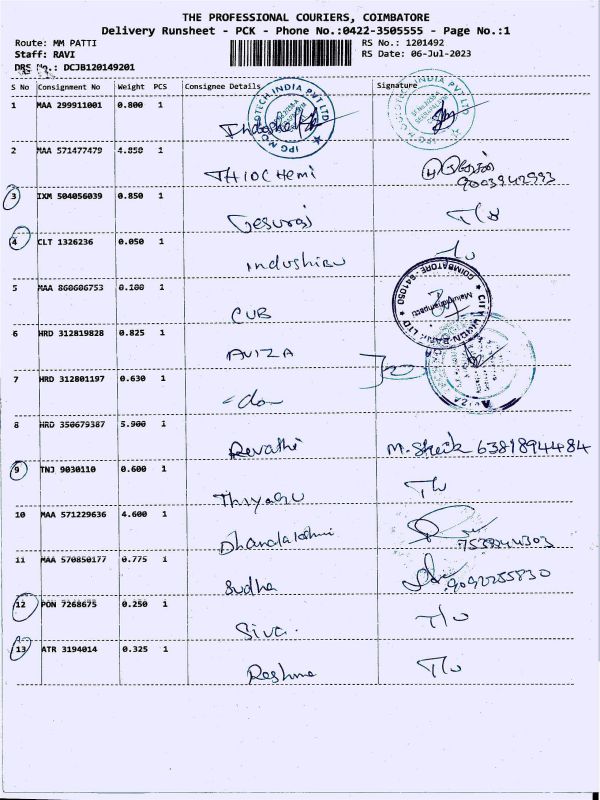 THE PROFESSIONAL COURIERS, COIMBATORE
Delivery Runsheet - PCK - Phone No.:0422-3505555 - Page No.:1
Route: MM PATTI RS No.: 1201492
Staff: RAVI RS Date: 06-Jul-2023
DRS No.: DCJB120149201
S No Consignment No Weight PCS Consignee Details Signature
1 MAA 299911001 0.800 1
2 MAA 571477479 4.850 1 THIOCHEMI
3 IXM 504056039 0.850 1 Jesuraj
4 CLT 1326236 0.050 1 Indushiru
5 MAA 860606753 0.100 1 CUB
6 HRD 312819828 0.825 1 AVIZA
7 HRD 312801197 0.630 1 -do-
8 HRD 350679387 5.900 1 Revathi M. Sheik 6381894484
9 TNJ 9030110 0.600 1 Thiyagu
10 MAA 571229636 4.600 1 Dhanalakshmi 7538944303
11 MAA 570850177 0.775 1 Sudha 9092255830
12 PON 7268675 0.250 1 Siva.
13 ATR 3194014 0.325 1 Reshma